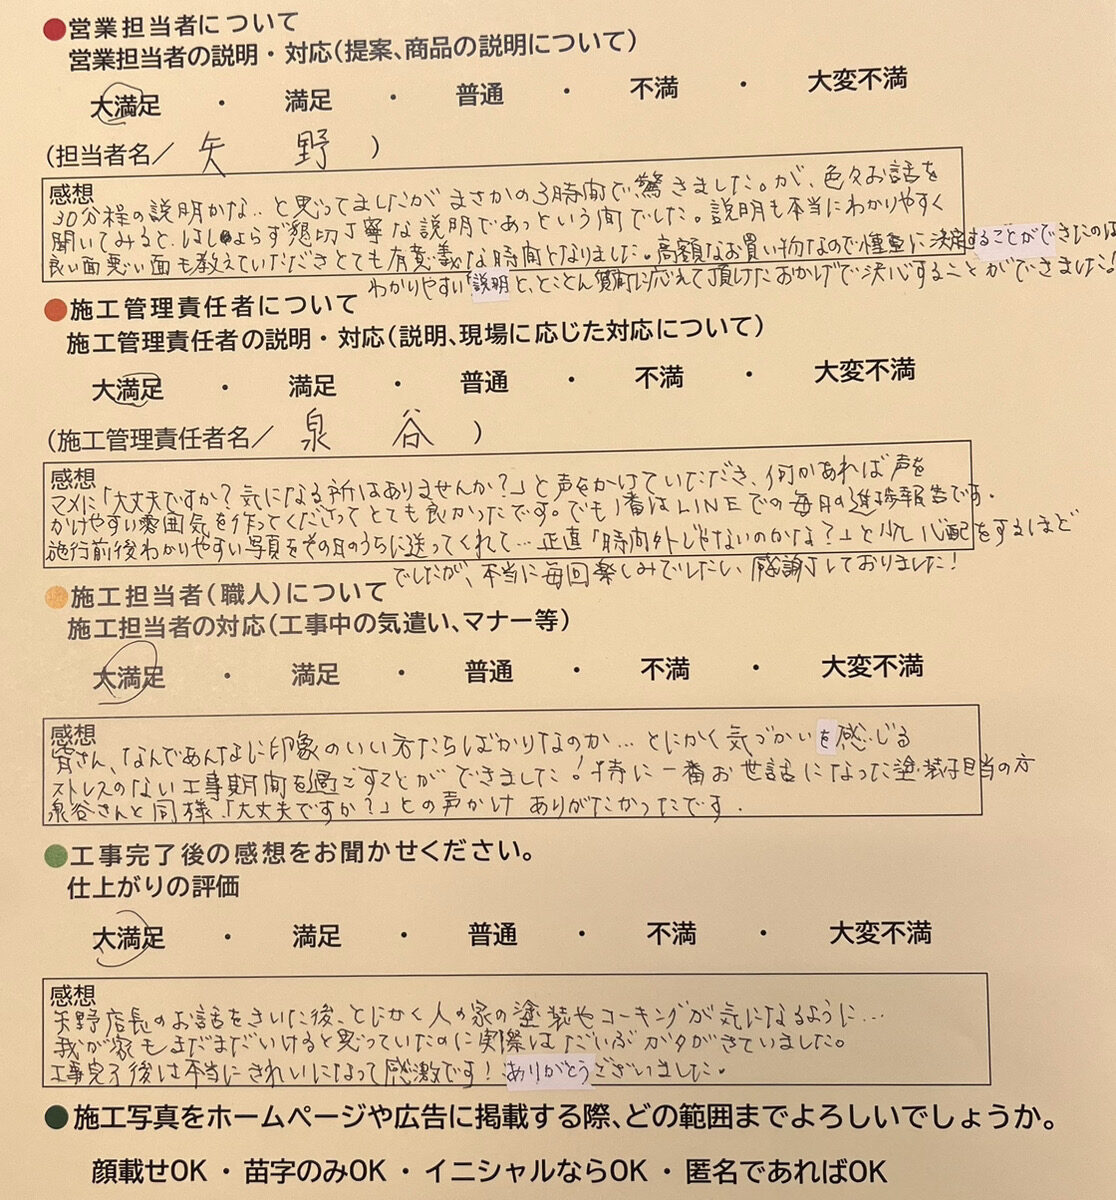 ●営業担当者について
営業担当者の説明・対応(提案、商品の説明について)
大満足 ・ 満足 ・ 普通 ・ 不満 ・ 大変不満
(担当者名／ 矢 野 )
感想
30分程の説明かな‥と思ってましたがまさかの3時間で、驚きました。が、色々お話を
聞いてみると、はしょらず懇切丁寧な説明であっという間でした。説明も本当にわかりやすく
良い面悪い面も教えていただきとても有意義な時間となりました。高額なお買い物なので慎重に決定することができたのは
わかりやすい説明と、とことん質問に応えて頂けたおかげで決心することができました!
●施工管理責任者について
施工管理責任者の説明・対応(説明、現場に応じた対応について)
大満足 ・ 満足 ・ 普通 ・ 不満 ・ 大変不満
(施工管理責任者名／ 泉 谷 )
感想
マメに「大丈夫ですか?気になる所はありませんか?」と声をかけていただき、何かあれば声を
かけやすい雰囲気を作ってくださってとても良かったです。でも1番はLINEでの毎日の進捗報告です.
施行前後わかりやすい写真をその日のうちに送ってくれて…正直「時間外じゃないのかな?」と少し心配をするほど
でしたが、本当に毎回楽しみでしたし、感謝しておりました!
●施工担当者(職人)について
施工担当者の対応(工事中の気遣い、マナー等)
大満足 ・ 満足 ・ 普通 ・ 不満 ・ 大変不満
感想
皆さん、なんであんなに印象のいい方たちばかりなのか…とにかく気づかいを感じる
ストレスのない工事期間を過ごすことができました!特に一番お世話になった塗装担当の方
泉谷さんと同様、「大丈夫ですか?」との声かけ ありがたかったです.
●工事完了後の感想をお聞かせください。
仕上がりの評価
大満足 ・ 満足 ・ 普通 ・ 不満 ・ 大変不満
感想
矢野店長のお話をきいた後、とにかく人の家の塗装やコーキングが気になるように…
我が家もまだまだいけると思っていたのに実際はだいぶガタがきていました。
工事完了後は本当にきれいになって感激です!ありがとうございました.
●施工写真をホームページや広告に掲載する際、どの範囲までよろしいでしょうか。
顔載せOK ・ 苗字のみOK ・ イニシャルならOK ・ 匿名であればOK